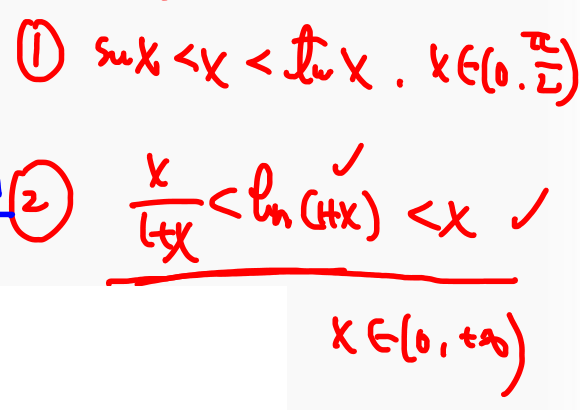 ① sin x < x < tan x . x ∈ (0, π/2)
② x/(1+x) < ln(1+x) < x ✓ ✓
x ∈ (0, +∞)